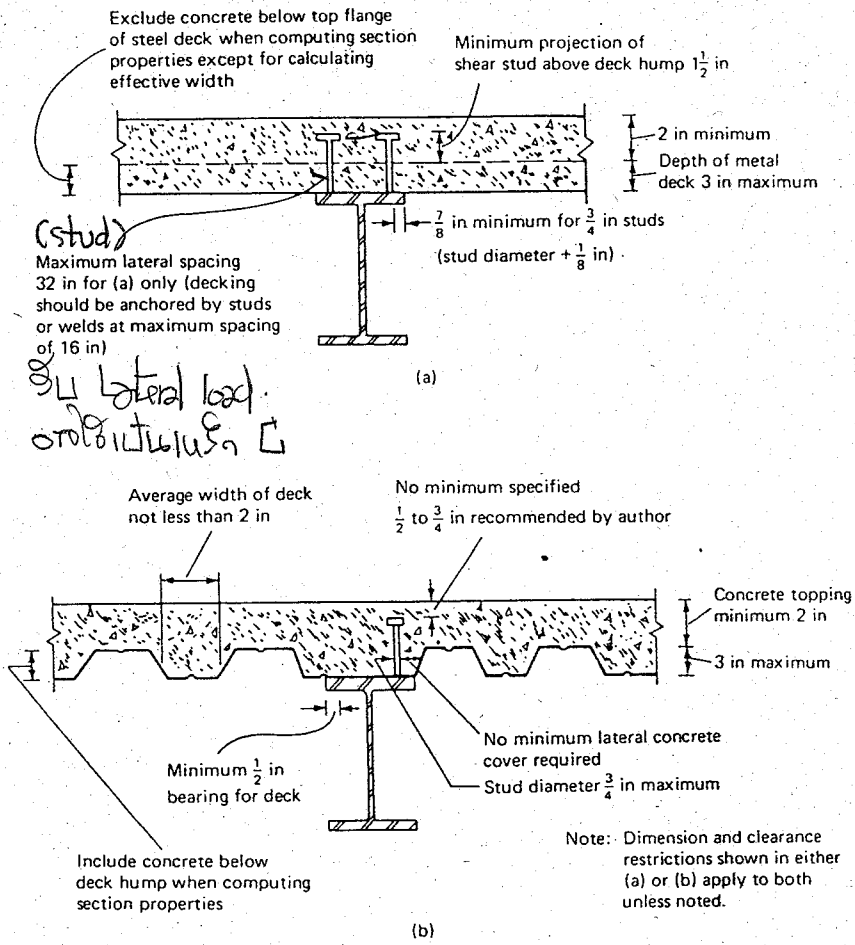 Exclude concrete below top flange
of steel deck when computing section
properties except for calculating
effective width
Minimum projection of
shear stud above deck hump 1 1/2 in
2 in minimum
Depth of metal
deck 3 in maximum
7/8 in minimum for 3/4 in studs
(stud diameter + 1/8 in)
(stud)
Maximum lateral spacing
32 in for (a) only (decking
should be anchored by studs
or welds at maximum spacing
of 16 in)
(a)
รับ Lateral load
Average width of deck
not less than 2 in
No minimum specified
1/2 to 3/4 in recommended by author
Concrete topping
minimum 2 in
3 in maximum
Minimum 1/2 in
bearing for deck
No minimum lateral concrete
cover required
Stud diameter 3/4 in maximum
Include concrete below
deck hump when computing
section properties
Note: Dimension and clearance
restrictions shown in either
(a) or (b) apply to both
unless noted.
(b)